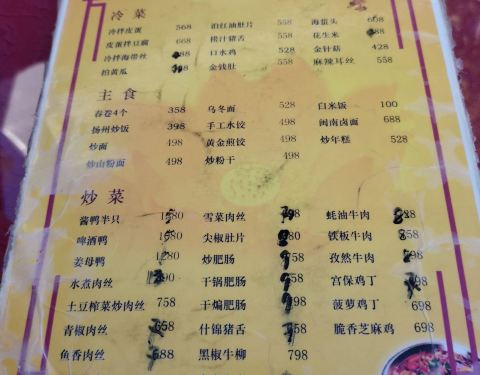 冷菜
冷拌皮蛋 568 泊红油肚片 558 海蜇头
皮蛋拌豆腐 668 桃汁猪舌 558 花生米
冷拌海带丝 口水鸡 528 金针菇 428
拍黄瓜 金钱肚 558 麻辣耳丝 558
主食
春卷4个 358 乌冬面 528 白米饭 100
扬州炒饭 398 手工水饺 498 闽南卤面 688
炒面 498 黄金煎饺 498 炒年糕 528
炒山粉面 498 炒粉干 498
炒菜
酱鸭半只 雪菜肉丝 蚝油牛肉
啤酒鸭 尖椒肚片 铁板牛肉
姜母鸭 1280 炒肥肠 孜然牛肉
水煮肉丝 干锅肥肠 宫保鸡丁
土豆榨菜炒肉丝 758 干煸肥肠 菠萝鸡丁 698
青椒肉丝 什锦猪舌 脆香芝麻鸡 698
鱼香肉丝 黑椒牛柳 798